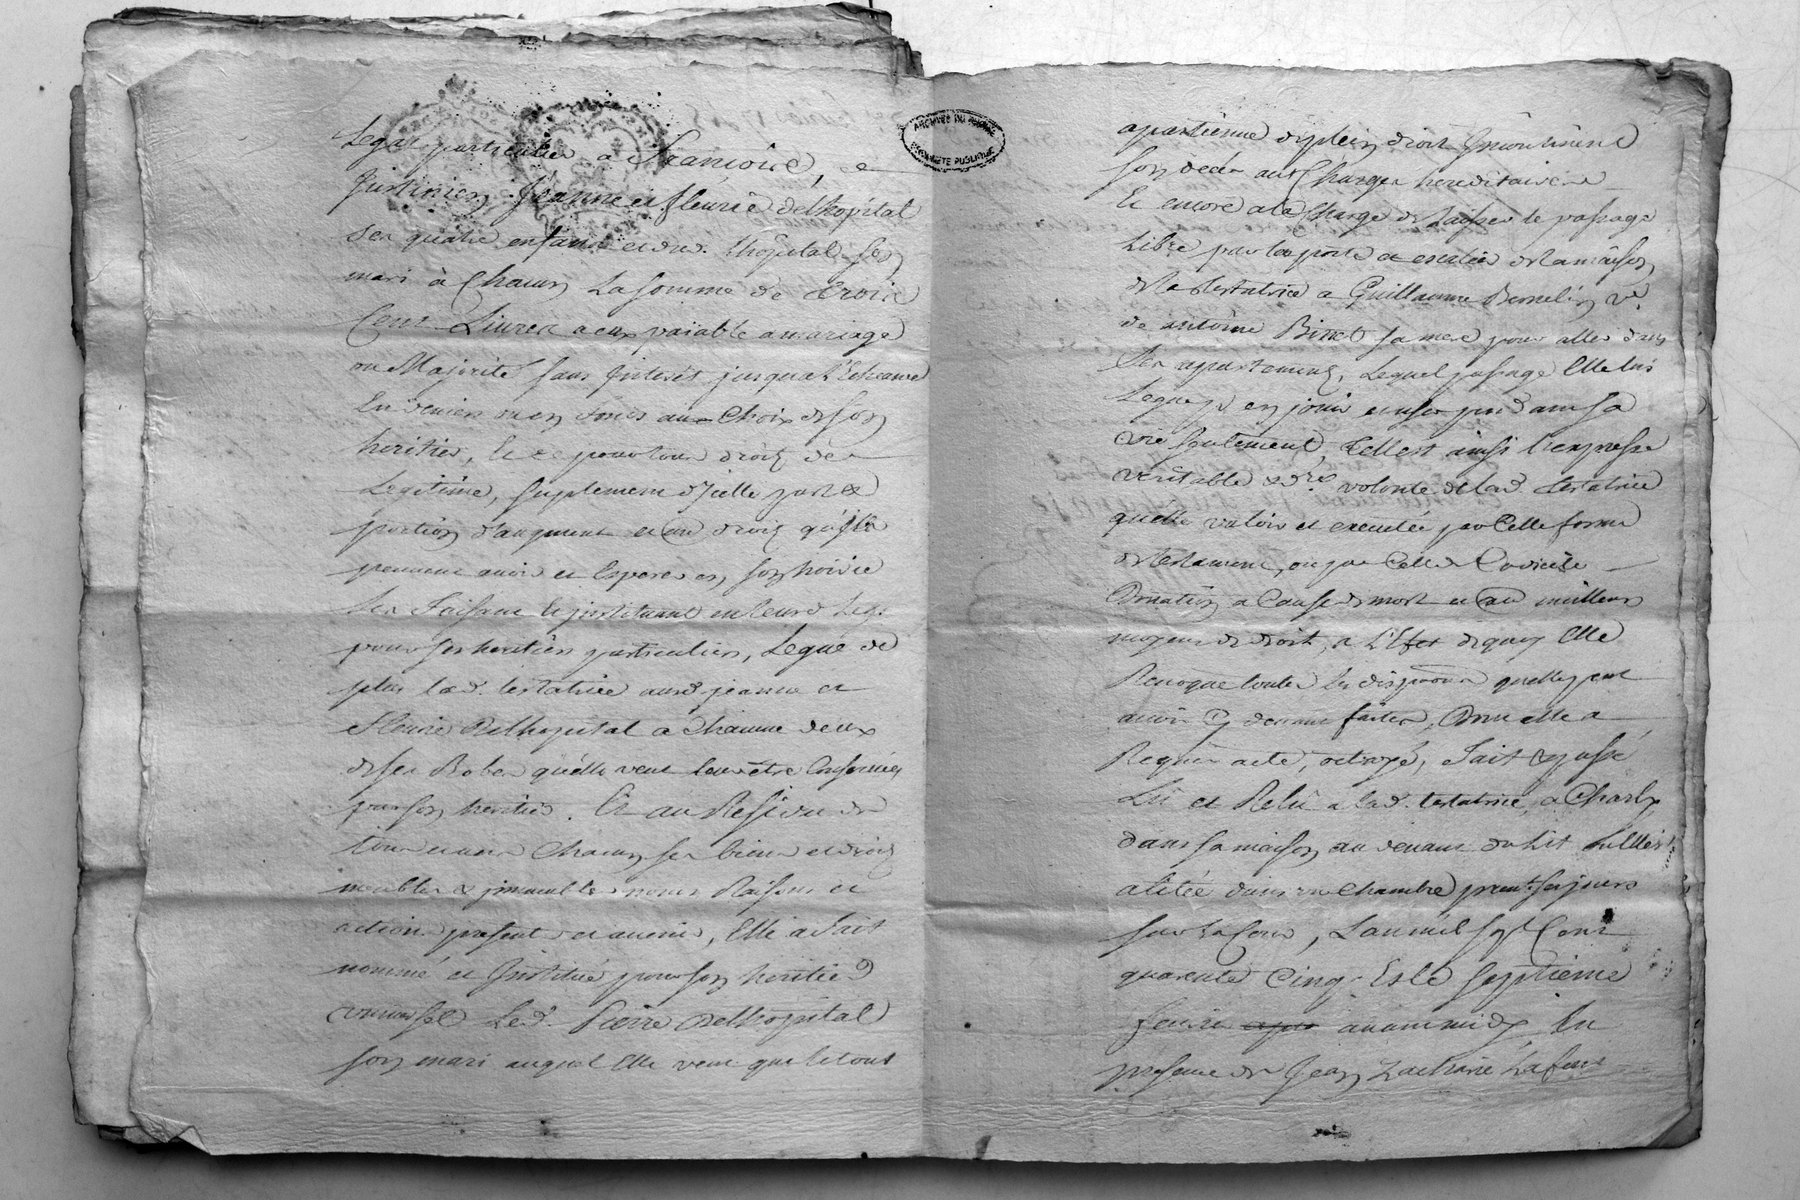 Legat particulier a Françoise, e
Justinien Jeanne et fleurie delhopital
ses quatre enfans et du d. lhôpital son
mari à Chacun La somme de trois
Cent Livres a eux païable a mariage
ou Majorité sans Interet jusqua l'Echeance
En deniers ou en fonds au Choix de son
heritier, le pour tous droits de
Legitime, suplement d'Jcelle part &
portion d'augment et droits qu'ils
peuvent avoir et Esperer en son hoirie
Les faisant & jnstituant en leurd. Legs
pour ses heritiers particuliers, Legue de
plus lad. testatrice auxd. jeanne et
fleurie Delhopital a Chacune deux
de ses Robes quelle veut leur être
par son heritier. Et au Residu de
tous et uns Chacuns ses biens et droits
meubles & jmmeubles noms Raisons et
actions presents et avenir, Elle a fait
nommé et Jnstitué pour son heritier
universel Led. Pierre Delhopital
son mari auquel Elle veut que le tout
ARCHIVES DU RHONE
apartienne de plein droit
son deces aux Charges hereditaires
Et encore a la Charge de laisser le passage
Libre par la porte et escalier de la maison
de la testatrice a Guillaume ve.
de antoine Binet sa mere pour aller dans
Ses apartements, Lequel passage Elle lui
Legue en jouir et user pendant sa
vie seulement, telle est ainsi l'expresse
veritable & d.re volonté de lad. testatrice
quelle valoir et executée par Celle forme
de testament, ou par Celle de Codicile
Donation a Cause de mort et au meilleur
moyens de droit, a L'Efet de quoy Elle
Revoque toutes les dispositions quelle peut
avoir Cy devant faites, Dont elle a
Requis acte, octroyé, fait & passé
Lû et Relû a lad. testatrice, a Charly
dans sa maison, au devant du Lit
alitée dans une chambre prenant ses jours
sur la Cour, L'an mil sept Cent
quarente Cinq Et le septieme
fevrier avant midy En
presence de Jean Zacharie Lafont